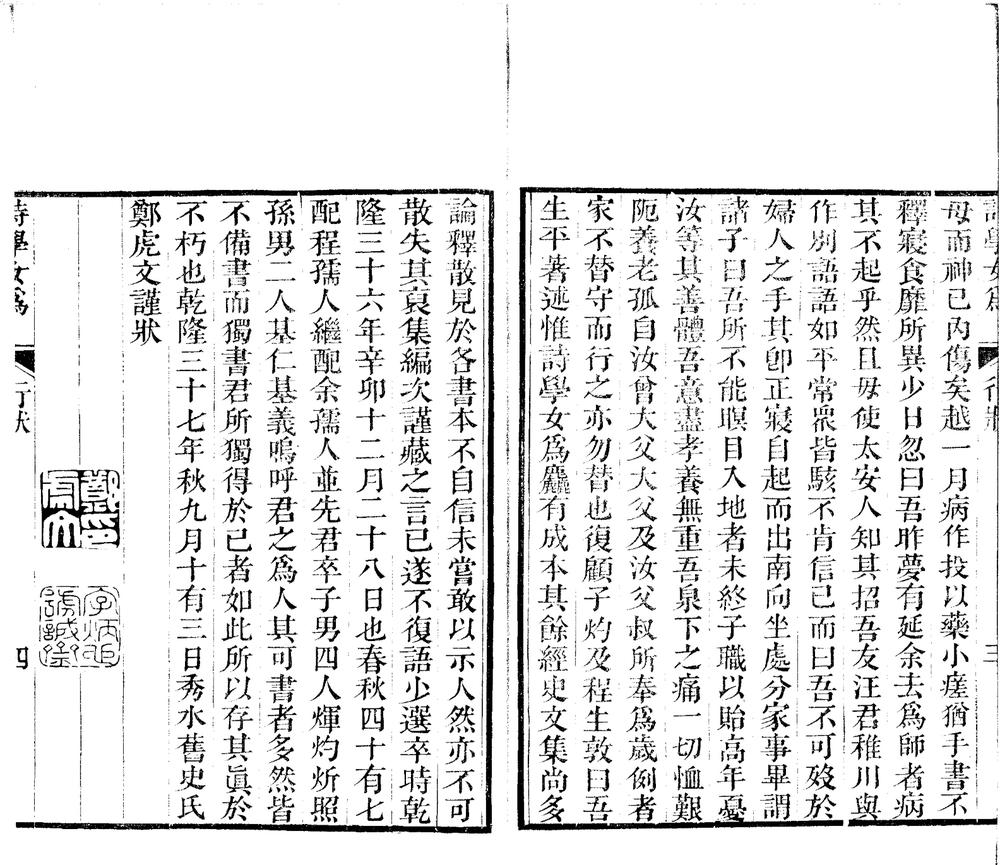 詩學女爲
行狀
三
母而神已內傷矣越一月病作投以藥小瘥猶手書不
釋寢食靡所異少日忽曰吾昨夢有延余去爲師者病
其不起乎然且毋使太安人知其招吾友汪君稚川與
作別語語如平常衆皆駭不肯信已而曰吾不可歿於
婦人之手其卽正寢自起而出南向坐處分家事畢謂
諸子曰吾所不能暝目入地者未終子職以貽高年憂
汝等其善體吾意盡孝養無重吾泉下之痛一切恤艱
阨養老孤自汝曾大父大父及汝父叔所奉爲歲例者
家不替守而行之亦勿替也復顧子灼及程生敦曰吾
生平著述惟詩學女爲麤有成本其餘經史文集尚多
論釋散見於各書本不自信未嘗敢以示人然亦不可
散失其裒集編次謹藏之言已遂不復語少選卒時乾
隆三十六年辛卯十二月二十八日也春秋四十有七
配程孺人繼配余孺人並先君卒子男四人煇灼炘照
孫男二人基仁基義嗚呼君之爲人其可書者多然皆
不備書而獨書君所獨得於己者如此所以存其眞於
不朽也乾隆三十七年秋九月十有三日秀水舊史氏
鄭虎文謹狀
詩學女爲
行狀
四